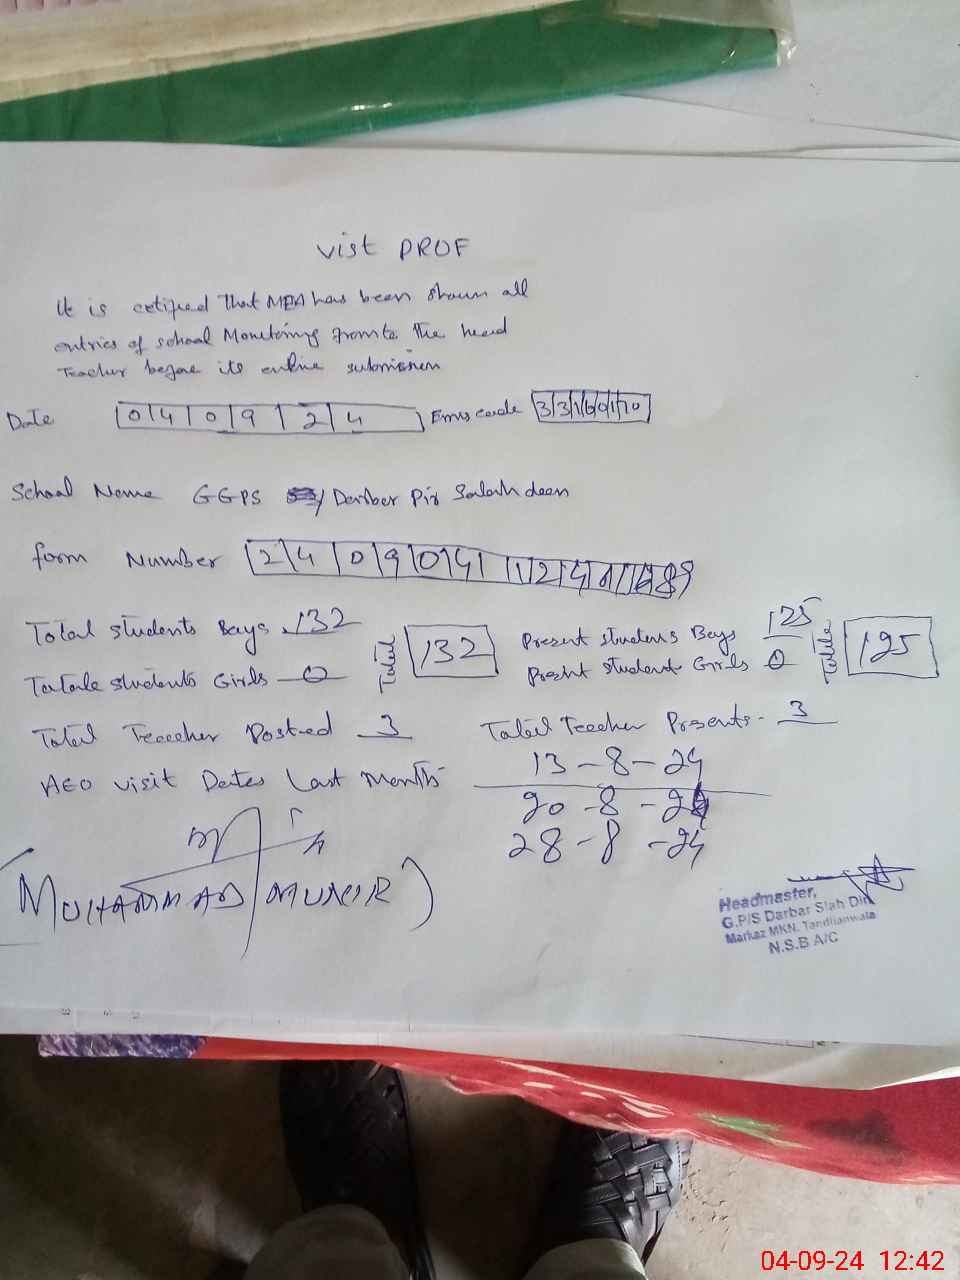 Vist PROF
It is cetified That MEA has been shown all
entries of school Monitoring Fromto the head
Teacher before its online submission
Date 04 09 24 Emis code
School Name GGPS Darber Pir Salah deen
form Number
Total Students Boys 132 Total 132 Present students Boys 125 Totale 125
Totale students Girls 0 Present student Girls 0
Total Teeecher Posted 3 Totel Teecher Presents - 3
AEO visit Dates Last Months 13-8-24
20-8-24
28-8-24
(MUHAMMAD MUNIR)
Headmaster,
G.P/S Darbar Slah Din
Markaz MKN. Tandlianwala
N.S.B A/C
04-09-24 12:42